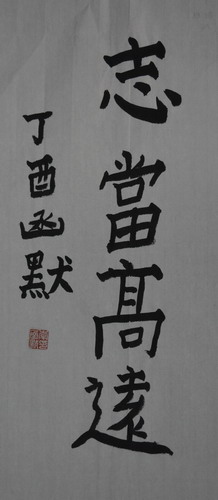 志當高遠
丁酉函默